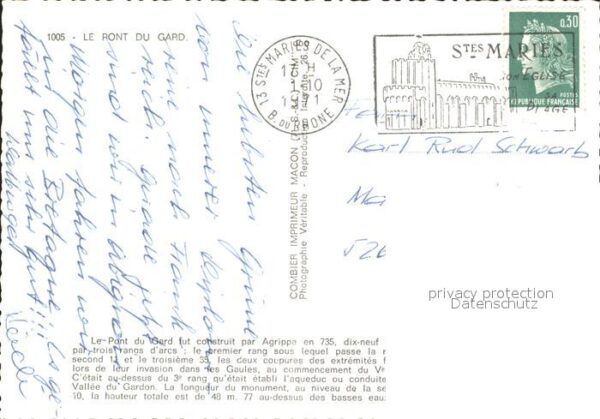 1005 - LE PONT DU GARD.
13 STES MARIES DE LA MER
1 10
1971
B. DU RHONE
STES MARIES
SON EGLISE
SA
PLAGE
0,30
POSTES
REPUBLIQUE FRANÇAISE
Karl Rud Schwarb
Ma
526
Die besten Grüsse
von unserer Diplom
reise nach Frank
reich. Gerade jetzt
sind wir in Avignon
Morgen fahren wir
in die Bretagne. Es geht
uns sehr gut!!!
COMBIER IMPRIMEUR MACON
Photographie Véritable - Reproduction Interdite
privacy protection
Datenschutz
Le Pont du Gard fut construit par Agrippa en 735, dix-neuf
par trois rangs d'arcs : le premier rang sous lequel passe la r
second 11 et le troisième 35, les deux coupures des extrémités f
lors de leur invasion dans les Gaules, au commencement du Ve
C'était au-dessus du 3e rang qu'était établi l'aqueduc ou conduite
Vallée du Gardon. La longueur du monument, au niveau de la se
10, la hauteur totale est de 48 m. 77 au-dessus des basses eau